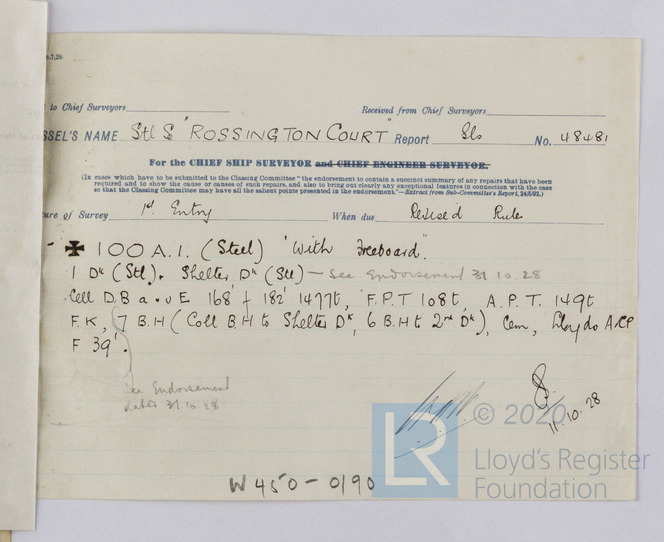 .7.28
t to Chief Surveyors Received from Chief Surveyors
SSEL'S NAME Stl S "ROSSINGTON COURT" Report Gls No. 48481
For the CHIEF SHIP SURVEYOR and CHIEF ENGINEER SURVEYOR.
(In cases which have to be submitted to the Classing Committee "the endorsement to contain a succinct summary of any repairs that have been
required and to show the cause or causes of such repairs, and also to bring out clearly any exceptional features in connection with the case
so that the Classing Committee may have all the salient points presented in the endorsement."—Extract from Sub-Committee's Report, 24/5/92.)
ure of Survey 1st Entry When due Revised Rules
✠ 100 A.1. (Steel) "With Freeboard".
1 Dk (Stl). Shelter Dk (Stl) — See Endorsement 31.10.28
Cell D.B a.u E 168' f 182' 1477t, F.P.T 108t, A.P.T. 149t
F.K, 7 B.H (Coll B.H to Shelter Dk, 6 B.H to 2nd Dk), Cem, Lloyds A&CP
F 39'.
See Endorsement
dated 31.10.28
11.10.28
© 2020
LR Lloyd's Register
Foundation
W450-0190